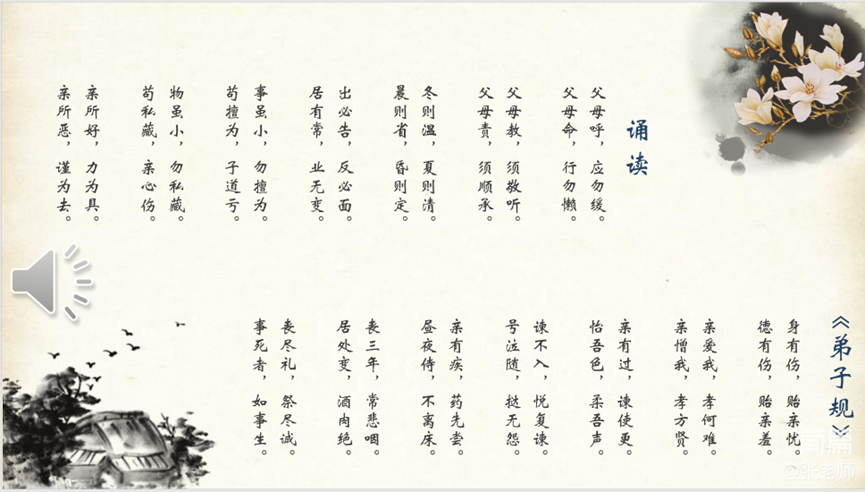 诵读
父母呼，应勿缓。
父母命，行勿懒。
父母教，须敬听。
父母责，须顺承。
冬则温，夏则清。
晨则省，昏则定。
出必告，反必面。
居有常，业无变。
事虽小，勿擅为。
苟擅为，子道亏。
物虽小，勿私藏。
苟私藏，亲心伤。
亲所好，力为具。
亲所恶，谨为去。
《弟子规》
身有伤，贻亲忧。
德有伤，贻亲羞。
亲爱我，孝何难。
亲憎我，孝方贤。
亲有过，谏使更。
怡吾色，柔吾声。
谏不入，悦复谏。
号泣随，挞无怨。
亲有疾，药先尝。
昼夜侍，不离床。
丧三年，常悲咽。
居处变，酒肉绝。
丧尽礼，祭尽诚。
事死者，如事生。
@张老师